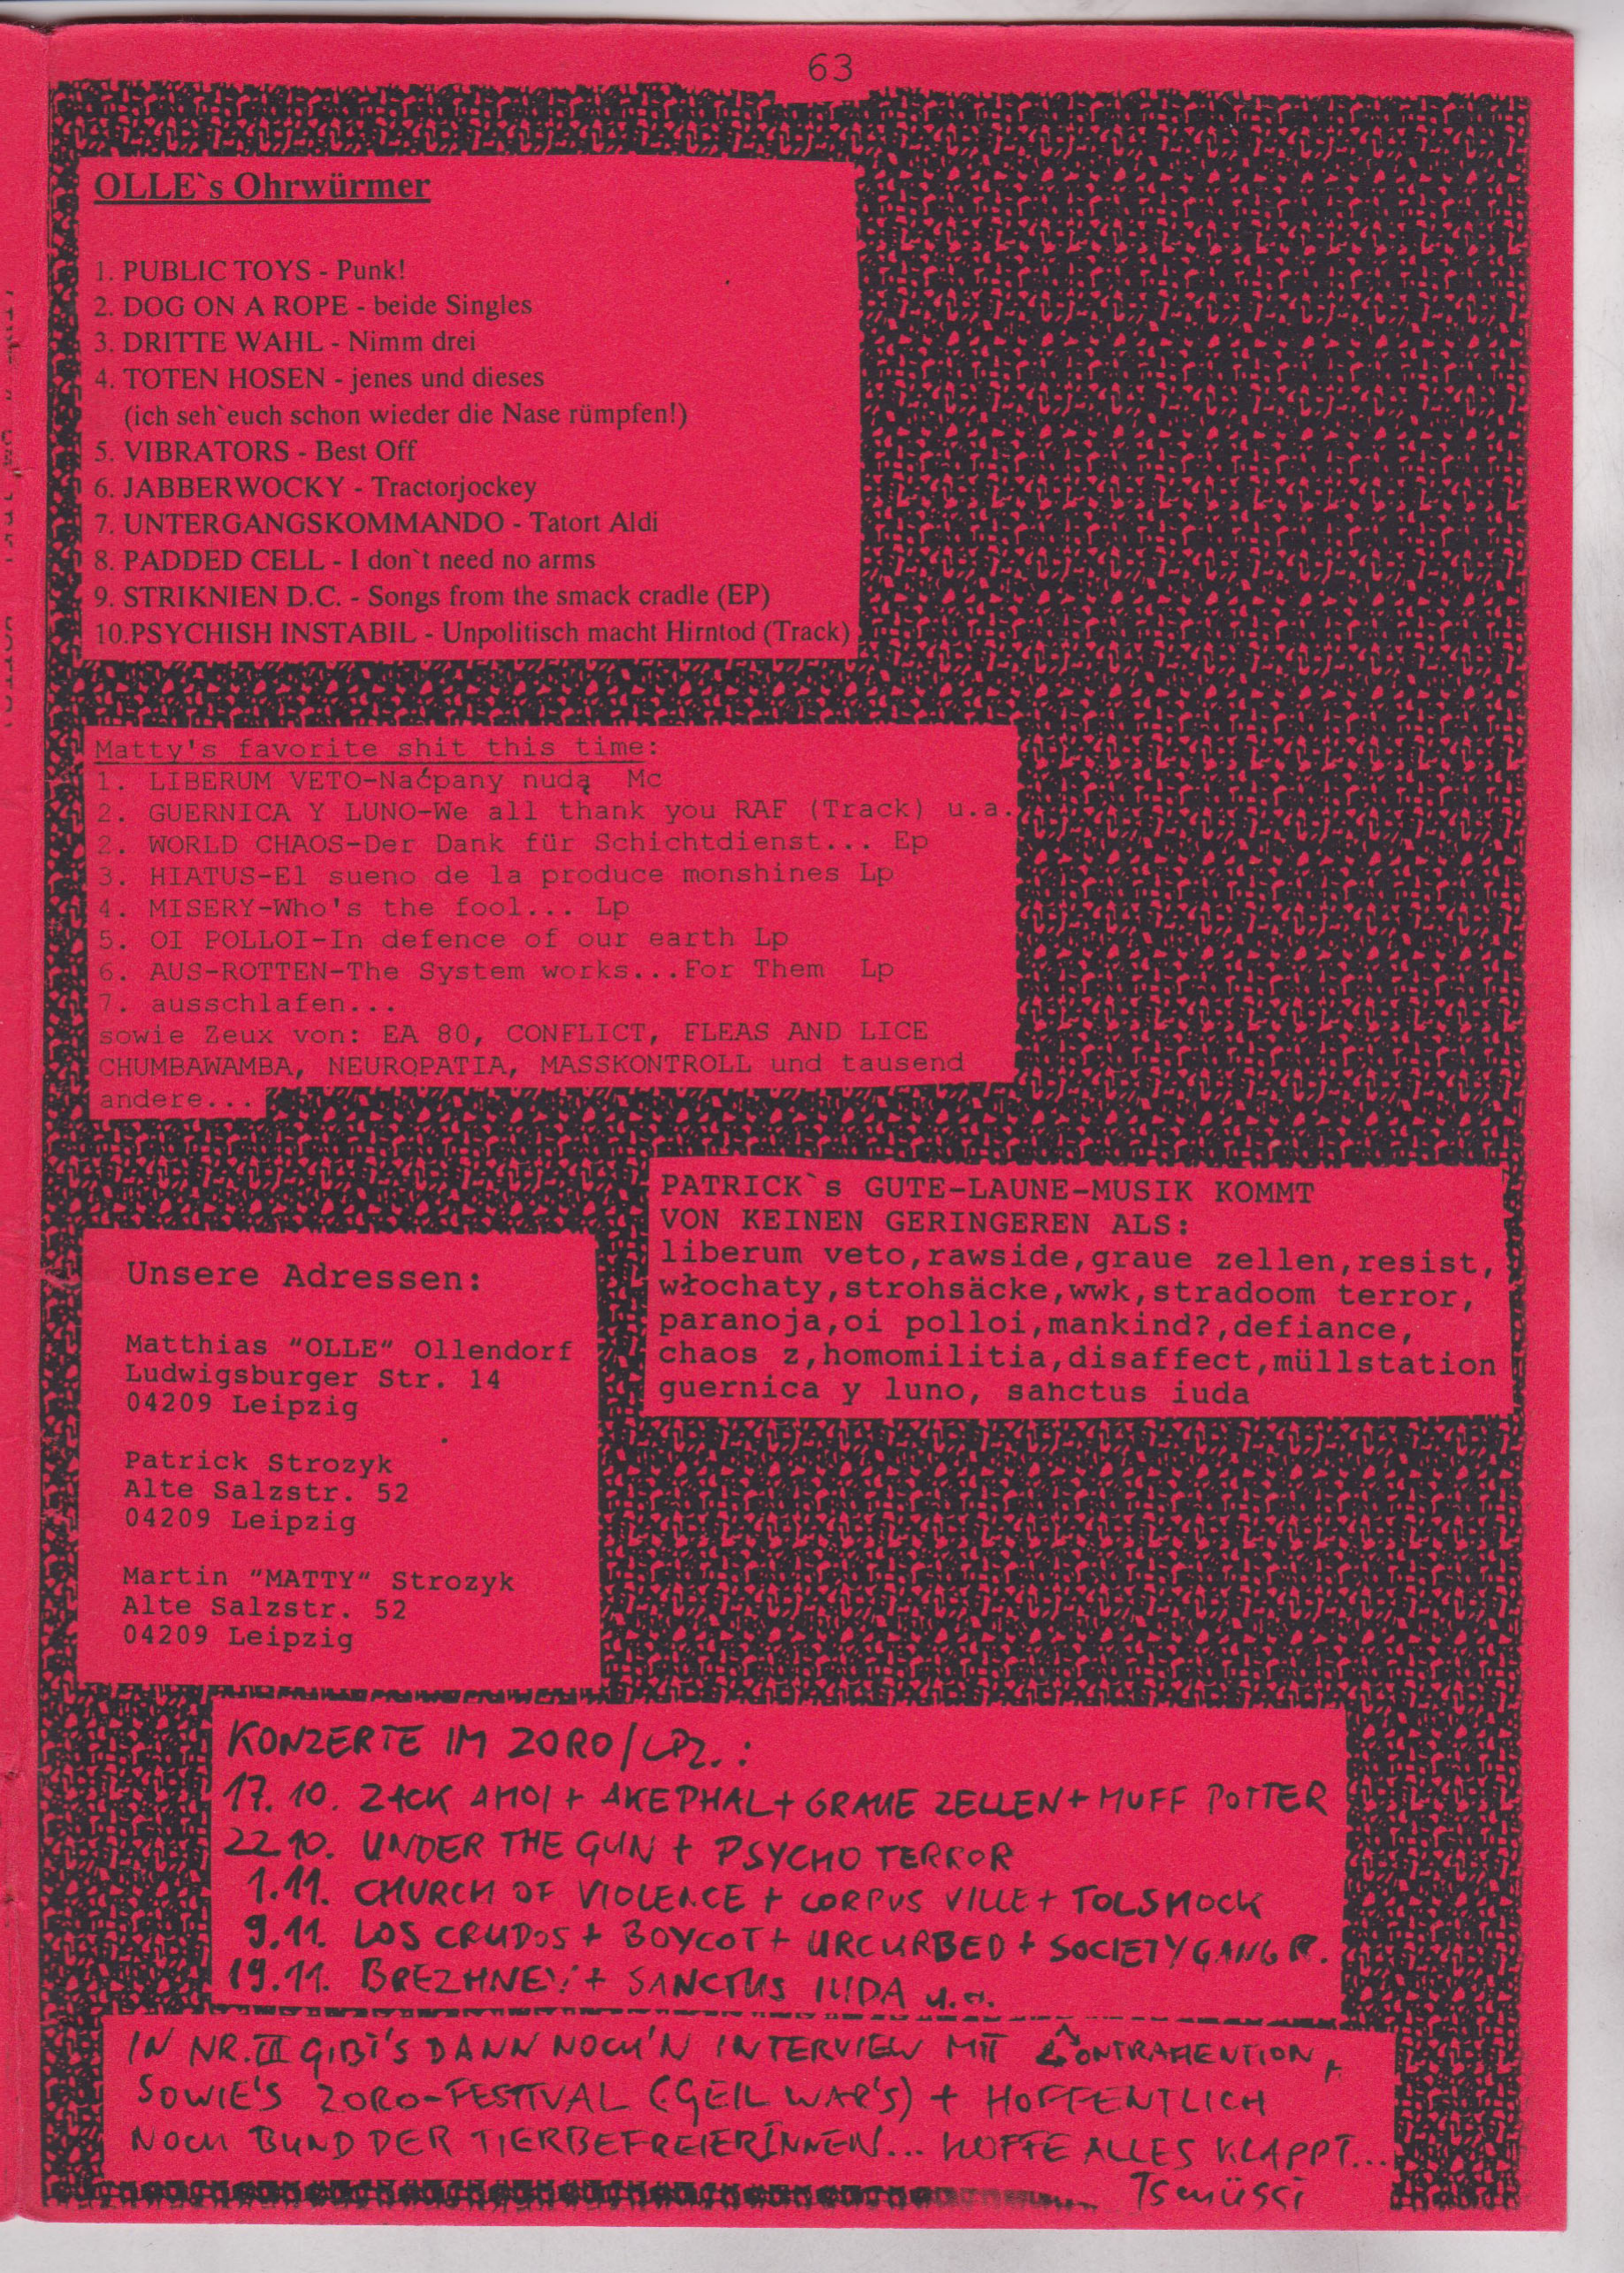 63
OLLE`s Ohrwürmer
1. PUBLIC TOYS - Punk!
2. DOG ON A ROPE - beide Singles
3. DRITTE WAHL - Nimm drei
4. TOTEN HOSEN - jenes und dieses
(ich seh`euch schon wieder die Nase rümpfen!)
5. VIBRATORS - Best Off
6. JABBERWOCKY - Tractorjockey
7. UNTERGANGSKOMMANDO - Tatort Aldi
8. PADDED CELL - I don`t need no arms
9. STRIKNIEN D.C. - Songs from the smack cradle (EP)
10.PSYCHISH INSTABIL - Unpolitisch macht Hirntod (Track)
Matty's favorite shit this time:
1. LIBERUM VETO-Naćpany nudą Mc
2. GUERNICA Y LUNO-We all thank you RAF (Track) u.a.
2. WORLD CHAOS-Der Dank für Schichtdienst... Ep
3. HIATUS-El sueno de la produce monshines Lp
4. MISERY-Who's the fool... Lp
5. OI POLLOI-In defence of our earth Lp
6. AUS-ROTTEN-The System works...For Them Lp
7. ausschlafen...
sowie Zeux von: EA 80, CONFLICT, FLEAS AND LICE
CHUMBAWAMBA, NEUROPATIA, MASSKONTROLL und tausend
andere...
PATRICK`s GUTE-LAUNE-MUSIK KOMMT
VON KEINEN GERINGEREN ALS:
liberum veto,rawside,graue zellen,resist,
włochaty,strohsäcke,wwk,stradoom terror,
paranoja,oi polloi,mankind?,defiance,
chaos z,homomilitia,disaffect,müllstation
guernica y luno, sanctus iuda
Unsere Adressen:
Matthias "OLLE" Ollendorf
Ludwigsburger Str. 14
04209 Leipzig
Patrick Strozyk
Alte Salzstr. 52
04209 Leipzig
Martin "MATTY" Strozyk
Alte Salzstr. 52
04209 Leipzig
KONZERTE IM ZORO/LPZ.:
17.10. ZACK AHOI + AKEPHAL + GRAUE ZELLEN + MUFF POTTER
22.10. UNDER THE GUN + PSYCHO TERROR
1.11. CHURCH OF VIOLENCE + CORPUS VILLE + TOLSHOCK
9.11. LOS CRUDOS + BOYCOT + URCURBED + SOCIETY GANG R.
19.11. BREZHNEV + SANCTUS IUDA u.a.
IN NR. III GIBT'S DANN NOCH'N INTERVIEW MIT
SOWIE'S ZORO-FESTIVAL (GEIL WAR'S) + HOFFENTLICH
NOCH BUND DER TIERBEFREIERINNEN... HOFFE ALLES KLAPPT...
Tschüssi